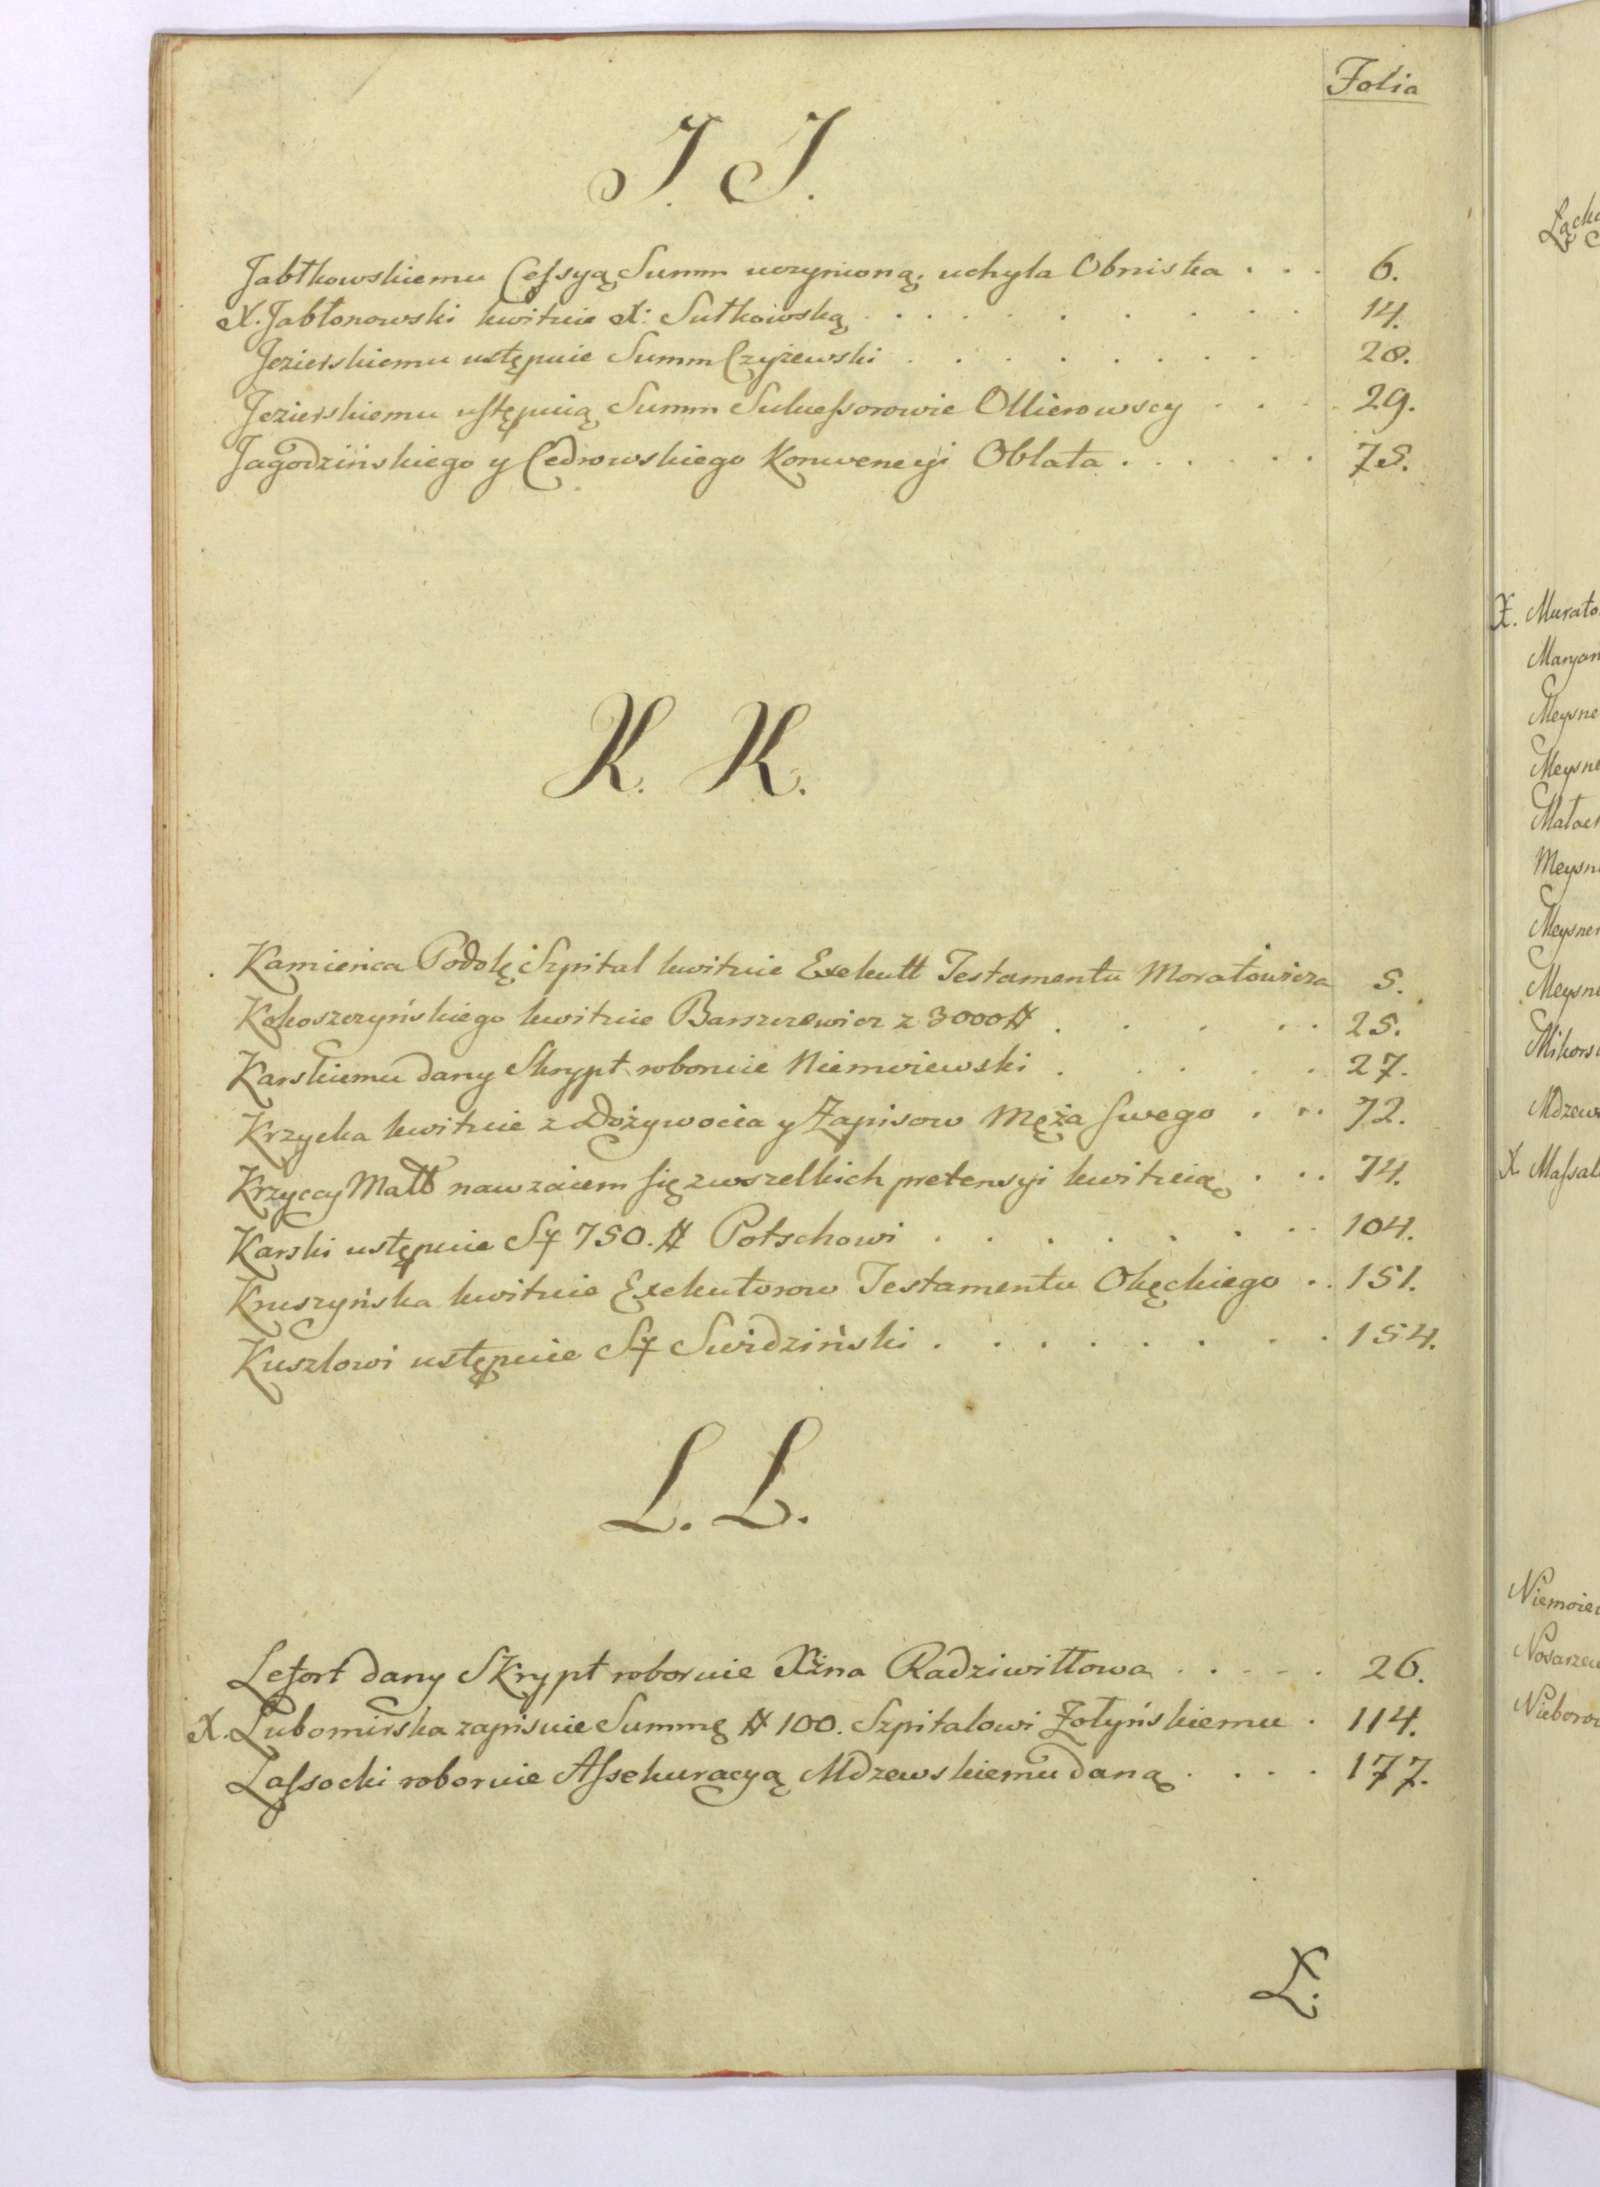 Folia
J. J.
Jabłkowskiemu Cessyą Summ uczynioną, uchyla Obniska . . . 6.
X. Jabłonowski kwituie X: Sułkowską . . . . . . . . . 14.
Jezierskiemu ustępuie Summ Czyżewski . . . . . . . 28.
Jezierskiemu ustępuią Summ Sukcessorowie Ollierowscy . . . 29.
Jagodzińskiego y Cedrowskiego Konwencyi Oblata . . . . . . 75.
K. K.
Kamieńca Podolę Szpital kwituie Exekutt Testamentu Moratowicza 5.
Kokoszczyńskiego kwituie Barszczewicz z 3000 # . . . . . . 25.
Karskiemu dany Skrypt roboruie Niemoiewski . . . . . . 27.
Krzycka kwituie z Dożywocia y Zapisow Męża swego . . . 72.
Krzyccy Matt nawzaiem się z wszelkich pretensyi kwituią . . . 74.
Karski ustępuie Sf 750. # Potschowi . . . . . . . . 104.
Kruszyńska kwituie Exekutorow Testamentu Okęckiego . . 151.
Kuszlowi ustępuie Sf Swidziński . . . . . . . . 154.
L. L.
Lefort dany Skrypt roboruie Xżna Radziwiłłowa . . . . . 26.
X. Lubomirska zapisuie Summę # 100. Szpitalowi Żołyńskiemu . 114.
Lassocki roboruie Assekuracyą Mdzewskiemu daną . . . . 177.
Ł.
X. Murato
Maryan
Meysne
Meysne
Małach
Meysn
Meysner
Meysn
Mikors
Mdzew
X Massal
Niemoie
Nosarzew
Nieboro